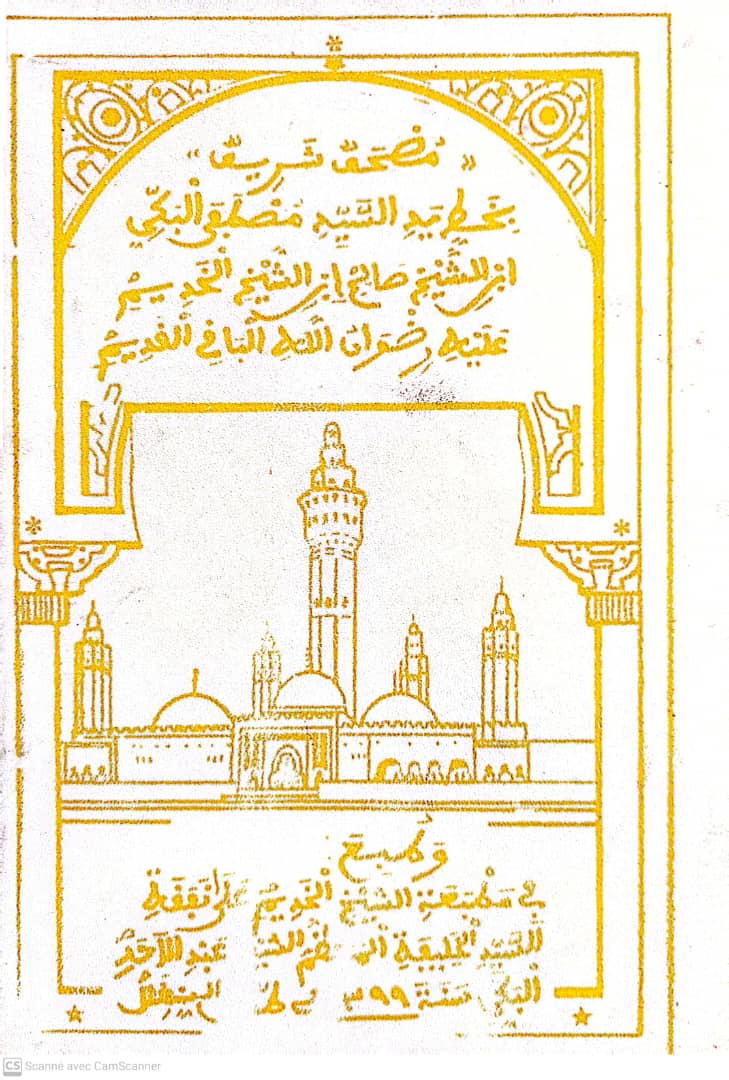 « مُصْحَفٌ شَرِيفٌ »
بِخَطِّ يَدِ السَّيِّدِ مُصْطَفَى الْبَكِّيِّ
ابْنِ الشَّيْخِ صَالِحْ اِبْنِ الشَّيْخِ الْخَدِيمِ
عَلَيْهِ رِضْوَانُ اللهِ الْبَاقِي الْقَدِيمِ
وَطُبِعَ
فِي مَطْبَعَةِ الشَّيْخِ الْخَدِيمِ عَلَى نَفَقَةِ
السَّيِّدِ الْخَلِيفَةِ الشَّيْخِ عَبْدِ الْأَحَدْ
الْبَكِّي سَنَةَ ١٣٩٩
CS Scanné avec CamScanner